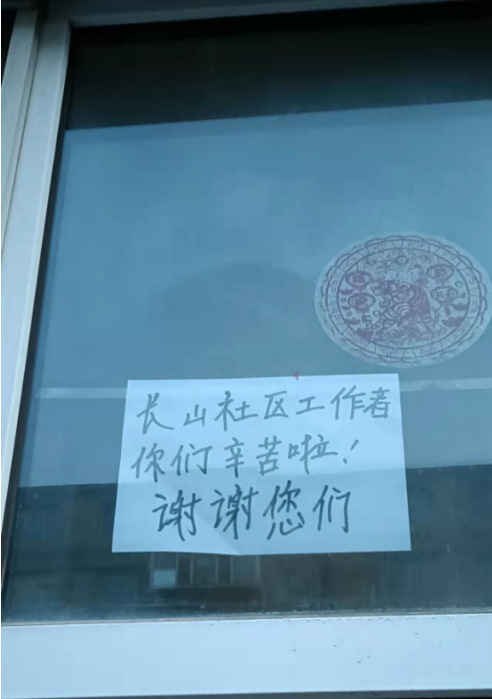 长山社区工作者
你们辛苦啦！
谢谢您们